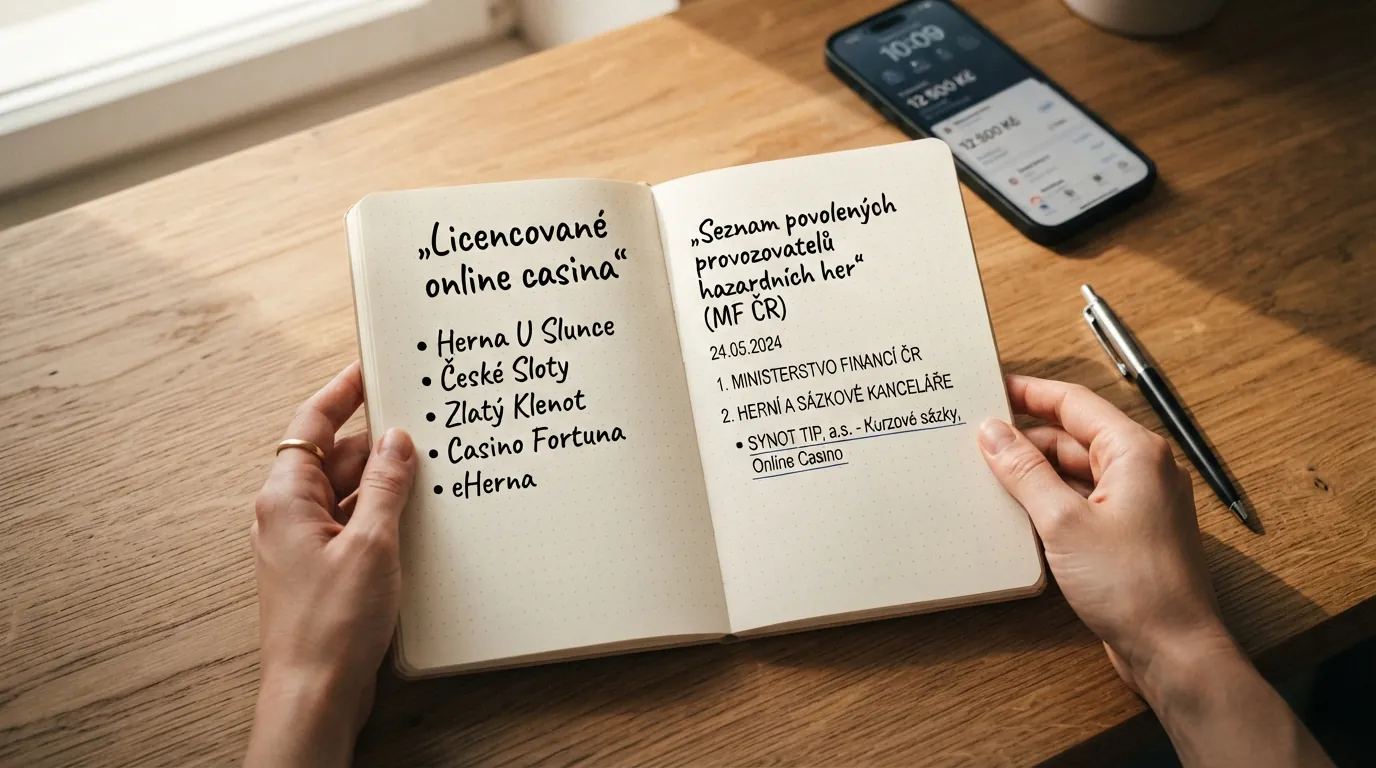 „Licencované
online casina“
• Herna U Slunce
• České Sloty
• Zlatý Klenot
• Casino Fortuna
• eHerna
„Seznam povolených
provozovatelů
hazardních her“
(MF ČR)
24.05.2024
1. MINISTERSTVO FINANCÍ ČR
2. HERNÍ A SÁZKOVÉ KANCELÁŘE
• SYNOT TIP, a.s. - Kurzové sázky,
Online Casino
10:09
12 900 Kč
12 300 Kč